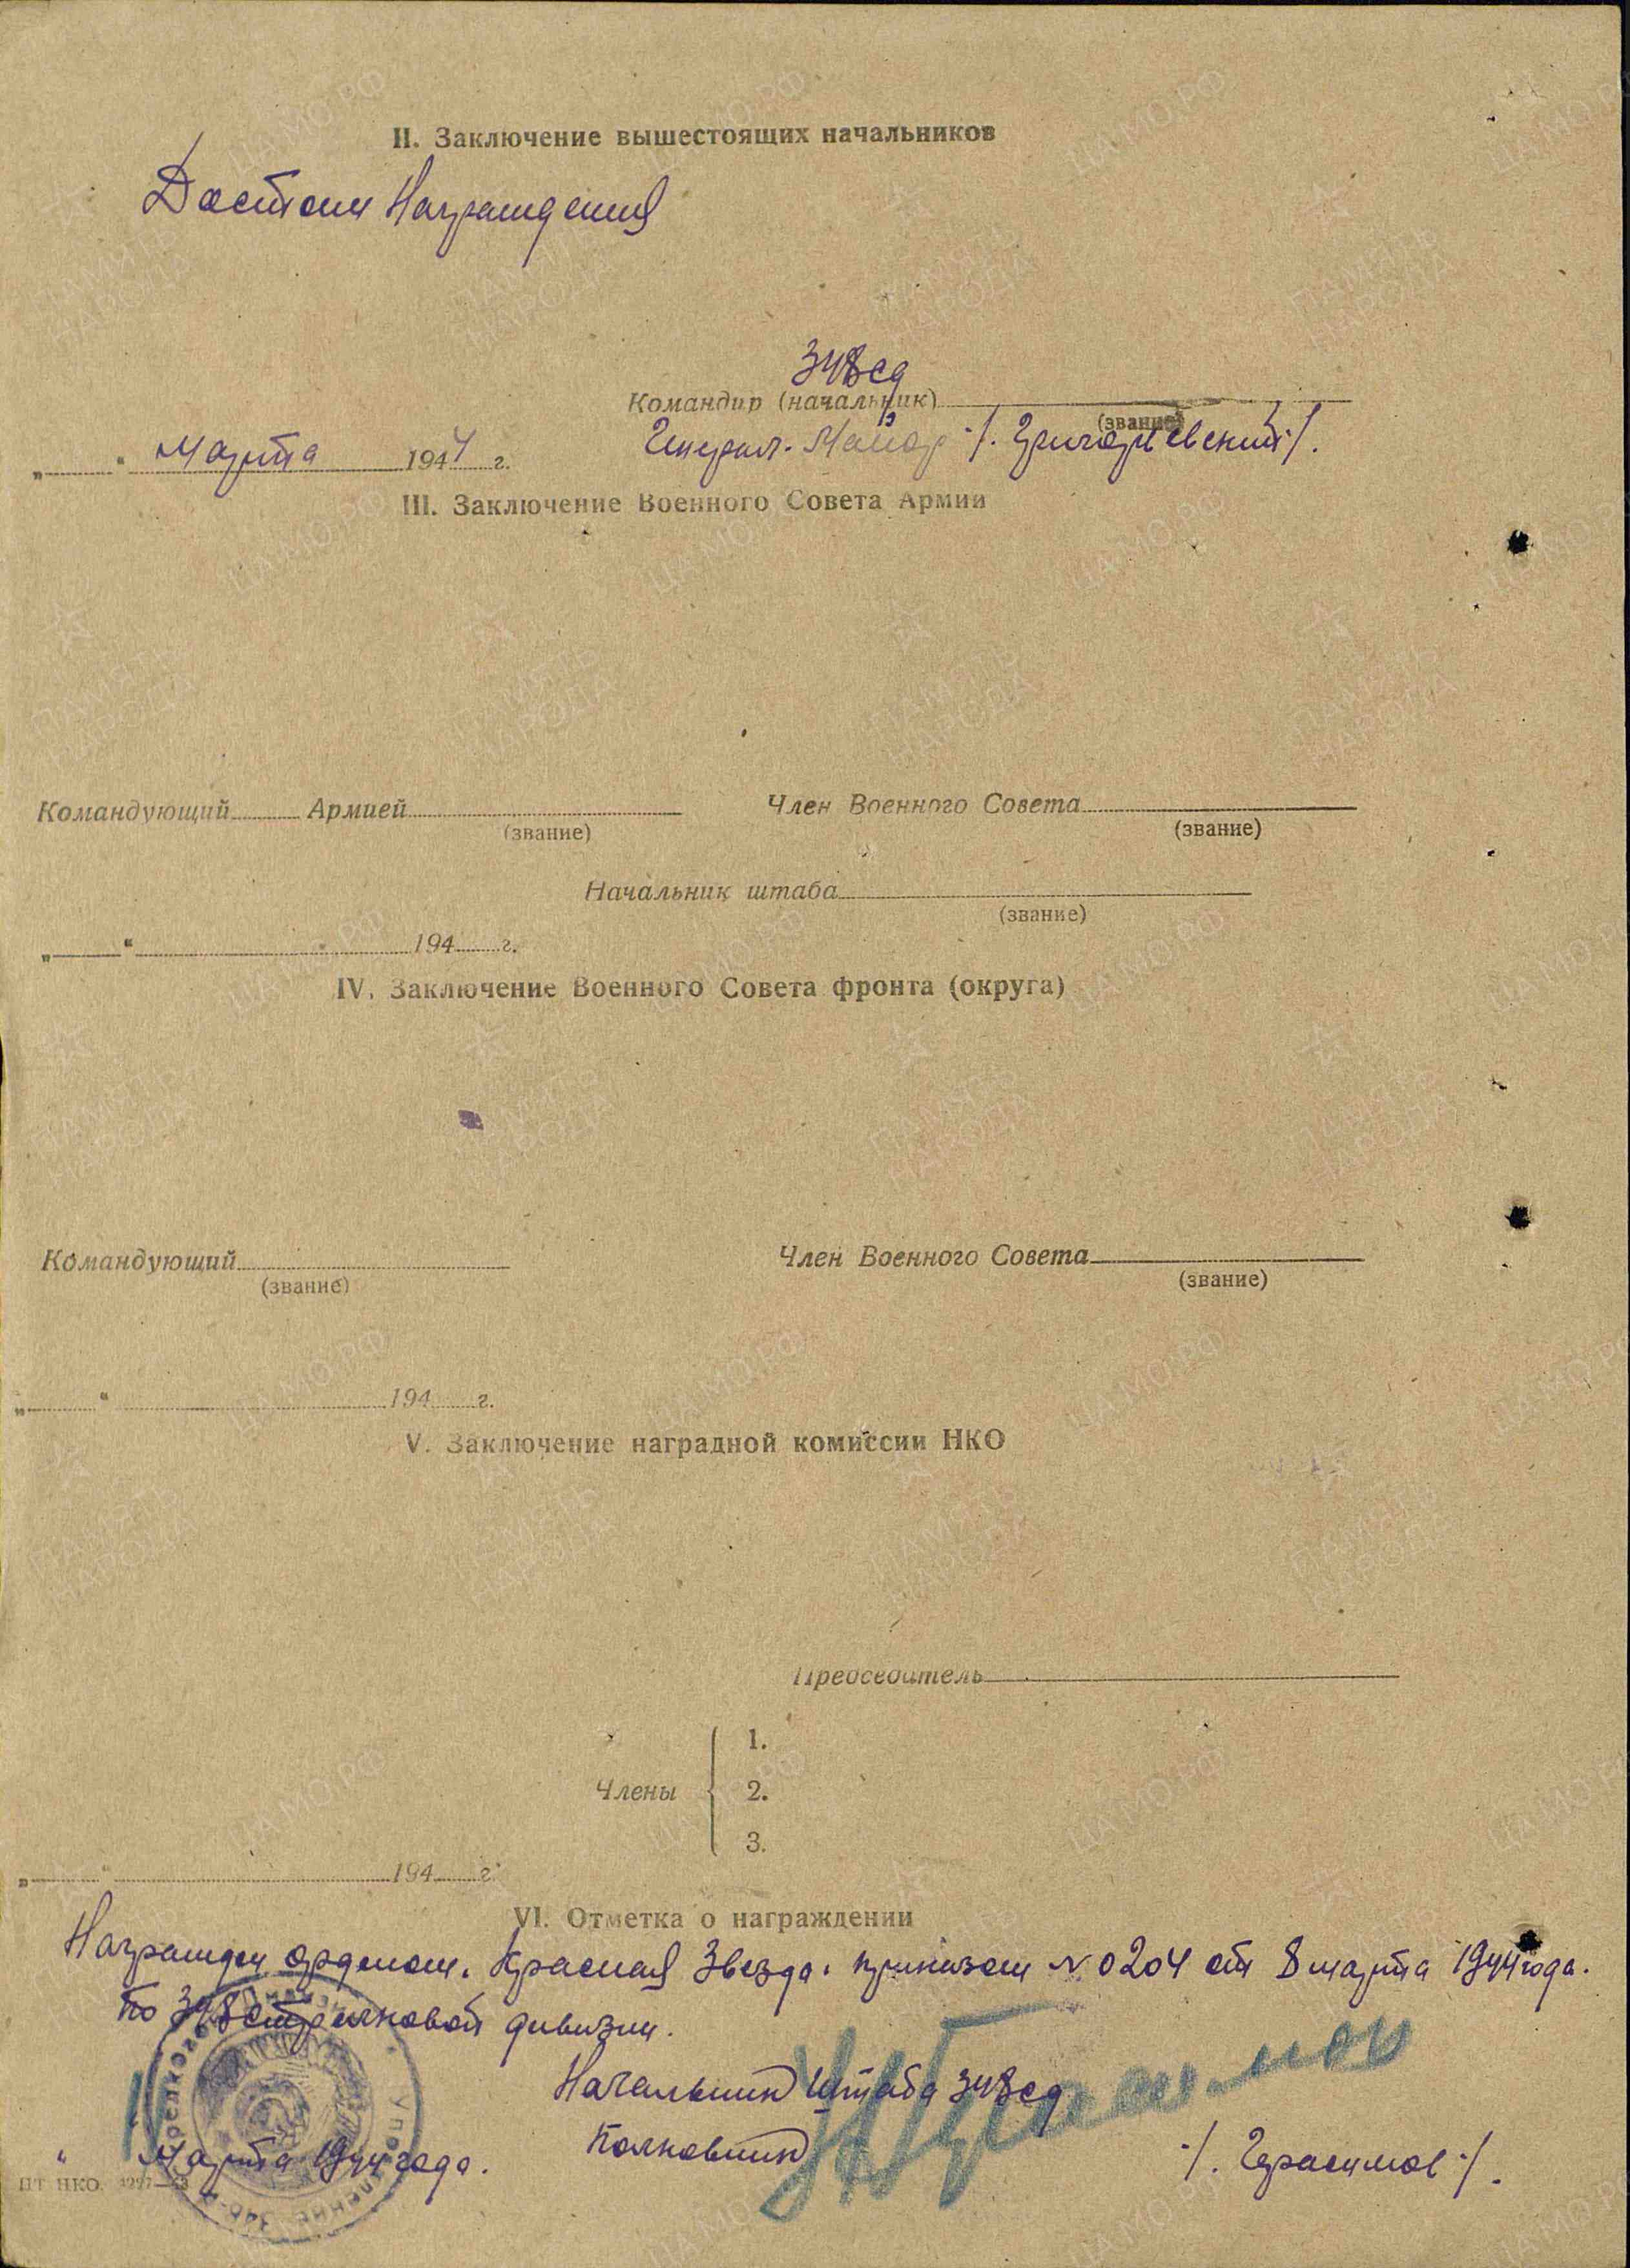 II. Заключение вышестоящих начальников
Достоин Награждения
348 сд
Командир (начальник)
(звание)
Генерал-Майор /. Григорьевский /.
„ “ Марта 1944 г.
III. Заключение Военного Совета Армии
Командующий Армией Член Военного Совета
(звание) (звание)
Начальник штаба
(звание)
„ “ 194 г.
IV. Заключение Военного Совета фронта (округа)
Командующий Член Военного Совета
(звание) (звание)
„ “ 194 г.
V. Заключение наградной комиссии НКО
Председатель
Члены
1.
2.
3.
„ “ 194 г.
VI. Отметка о награждении
Награжден орденом "Красная Звезда" приказом № 0204 от 8 марта 1944 года.
по 348 стрелковой дивизии.
Начальник Штаба 348 сд
Полковник /. Герасимов /.
11 " Марта 1944 года.
ПТ НКО.
ЦАМО.РФ
ПАМЯТЬ НАРОДА